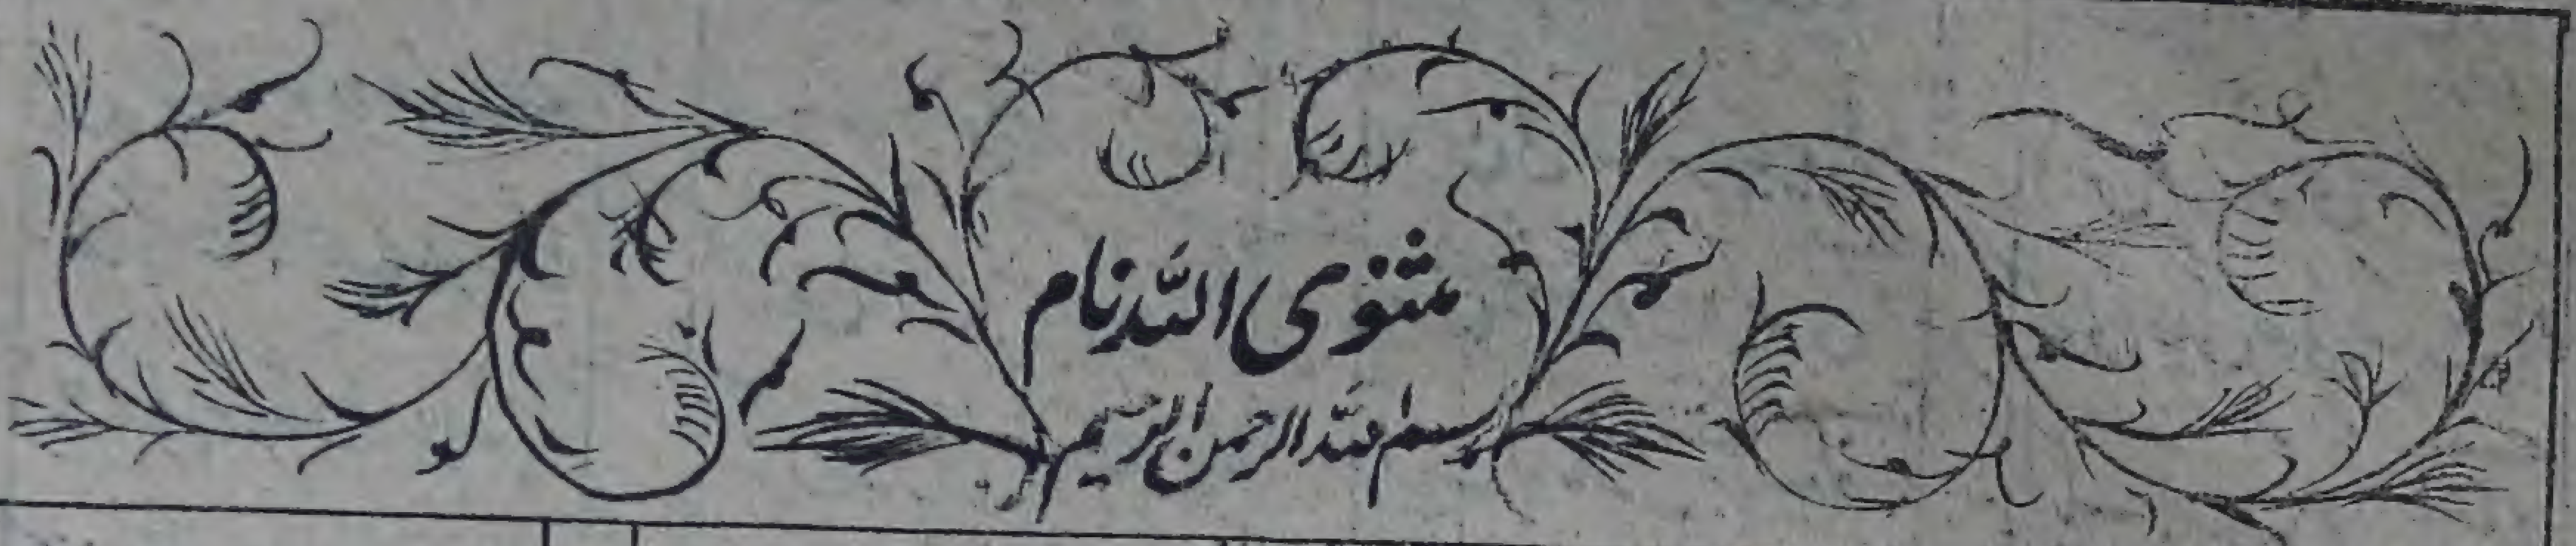 مثنوی اللّه نام
بسم اللّه الرحمن الرحیم